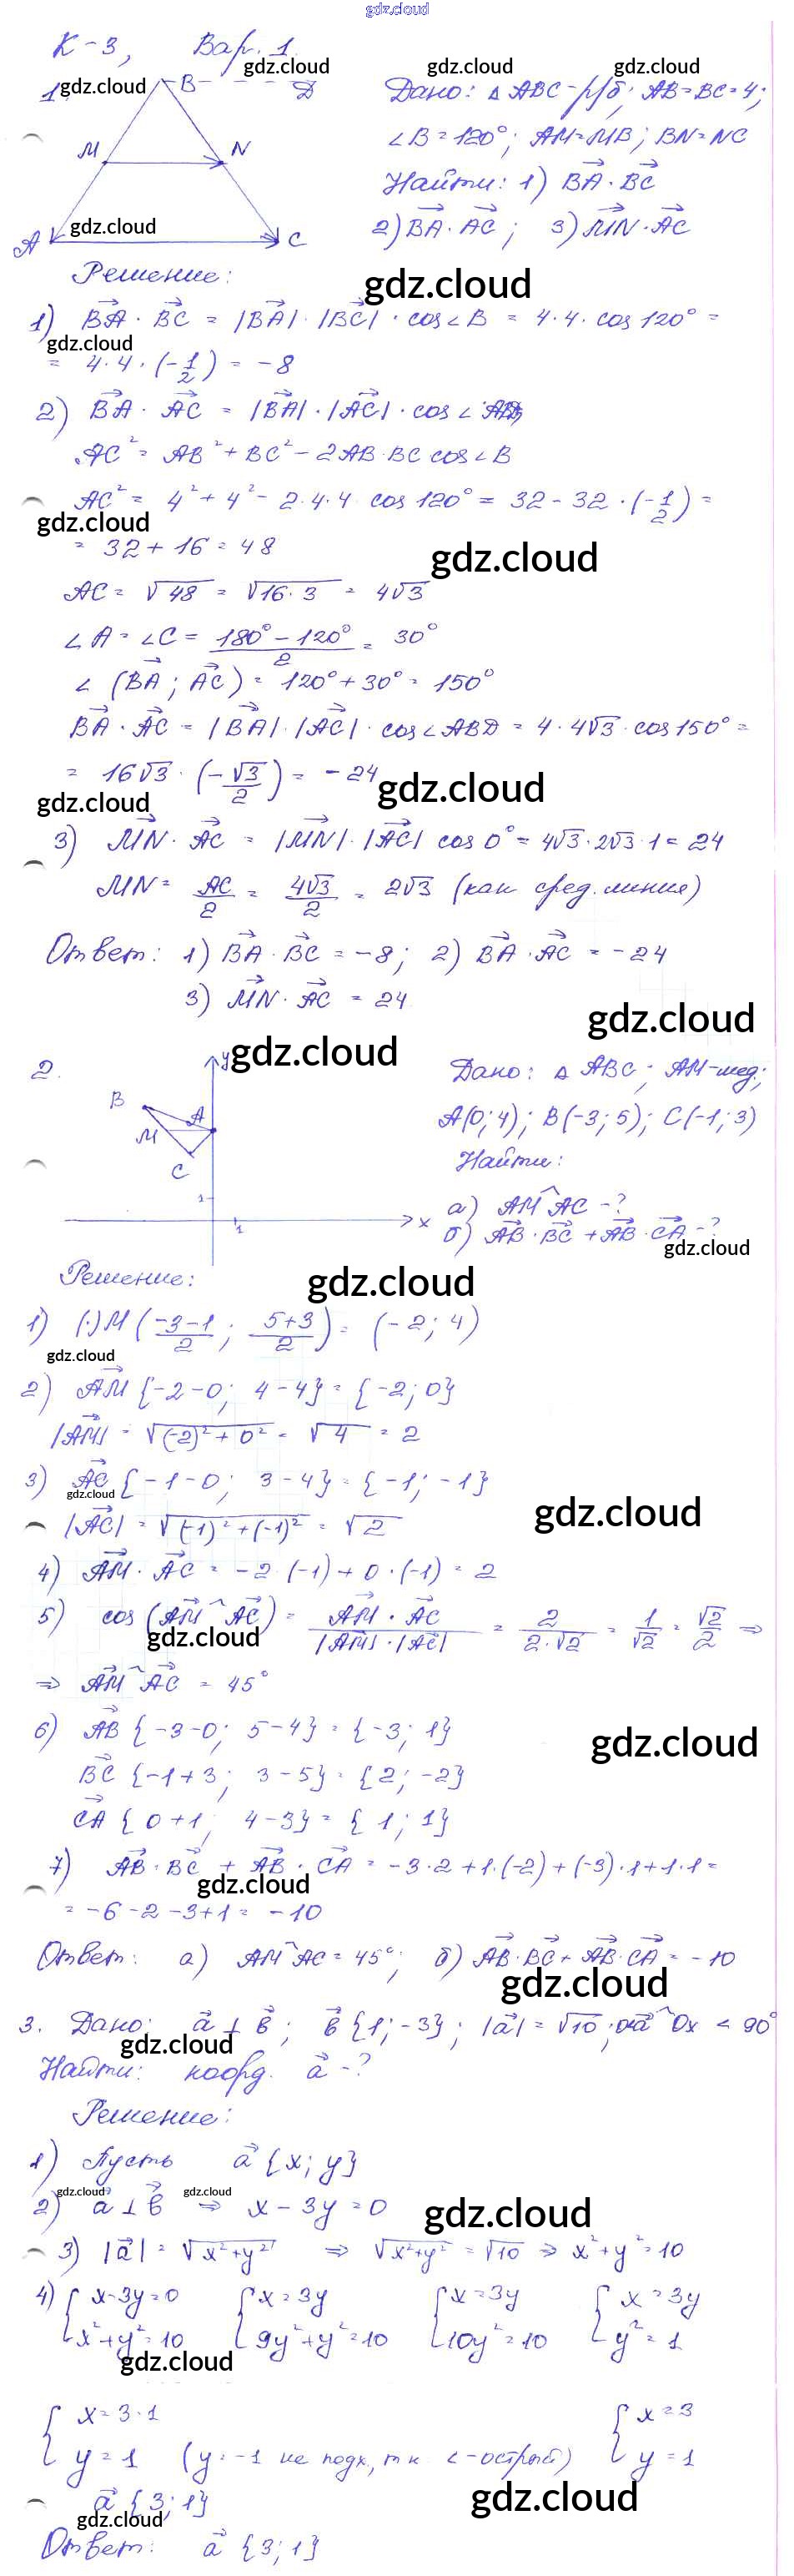 gdz.cloud
К-3, Вар. 1.
gdz.cloud gdz.cloud gdz.cloud
1. gdz.cloud B D
M N
A gdz.cloud C
Дано: △ ABC - р/б; AB=BC=4;
∠B=120°; AM=MB; BN=NC
Найти: 1) BA·BC
2) BA·AC; 3) MN·AC
Решение:
gdz.cloud
1) BA · BC = |BA|·|BC|·cos∠B = 4·4·cos 120° =
gdz.cloud
= 4·4·(-1/2) = -8
2) BA · AC = |BA|·|AC|·cos∠ABD
AC² = AB² + BC² - 2AB·BC cos∠B
AC² = 4² + 4² - 2·4·4 cos 120° = 32 - 32·(-1/2) =
gdz.cloud
= 32 + 16 = 48
gdz.cloud
AC = √48 = √16·3 = 4√3
∠A = ∠C = (180° - 120°)/2 = 30°
∠(BA; AC) = 120° + 30° = 150°
BA · AC = |BA|·|AC|·cos∠ABD = 4·4√3·cos 150° =
= 16√3·(-√3/2) = -24
gdz.cloud
gdz.cloud
3) MN · AC = |MN|·|AC| cos 0° = 4√3·2√3·1 = 24
MN = AC/2 = 4√3/2 = 2√3 (как сред. линия)
Ответ: 1) BA·BC = -8; 2) BA·AC = -24
3) MN·AC = 24
gdz.cloud
2. y gdz.cloud
B A
M
C
1
1 x
Дано: △ ABC; AM-мед;
A(0;4); B(-3;5); C(-1;3)
Найти:
а) AM^AC - ?
б) AB·BC + AB·CA - ?
gdz.cloud
Решение:
gdz.cloud
1) (·)M((-3-1)/2; (5+3)/2) = (-2; 4)
gdz.cloud
2) AM {-2-0; 4-4} = {-2; 0}
|AM| = √(-2)²+0² = √4 = 2
3) AC {-1-0; 3-4} = {-1; -1}
gdz.cloud
gdz.cloud
|AC| = √(-1)²+(-1)² = √2
4) AM · AC = -2·(-1) + 0·(-1) = 2
5) cos(AM^AC) = AM·AC/|AM|·|AC| = 2/2·√2 = 1/√2 = √2/2 ⇒
gdz.cloud
⇒ AM^AC = 45°
6) AB {-3-0; 5-4} = {-3; 1}
gdz.cloud
BC {-1+3; 3-5} = {2; -2}
CA {0+1; 4-3} = {1; 1}
7) AB·BC + AB·CA = -3·2+1·(-2)+(-3)·1+1·1 =
gdz.cloud
= -6-2-3+1 = -10
Ответ: а) AM^AC = 45°; б) AB·BC + AB·CA = -10
gdz.cloud
3. Дано: a ⊥ b; b {1; -3}; |a| = √10; a^Ox < 90°
gdz.cloud
Найти: коорд. a - ?
Решение:
1) Пусть a {x; y}
gdz.cloud gdz.cloud
2) a ⊥ b ⇒ x - 3y = 0
gdz.cloud
3) |a| = √x²+y² ⇒ √x²+y² = √10 ⇒ x²+y² = 10
4) { x-3y=0 { x=3y { x=3y { x=3y
x²+y²=10 9y²+y²=10 10y²=10 y²=1
gdz.cloud
{ x=3·1 { x=3
y=1 (y=-1 не подх, т.к ∠-острый) y=1
gdz.cloud
a {3; 1}
gdz.cloud
Ответ: a {3; 1}